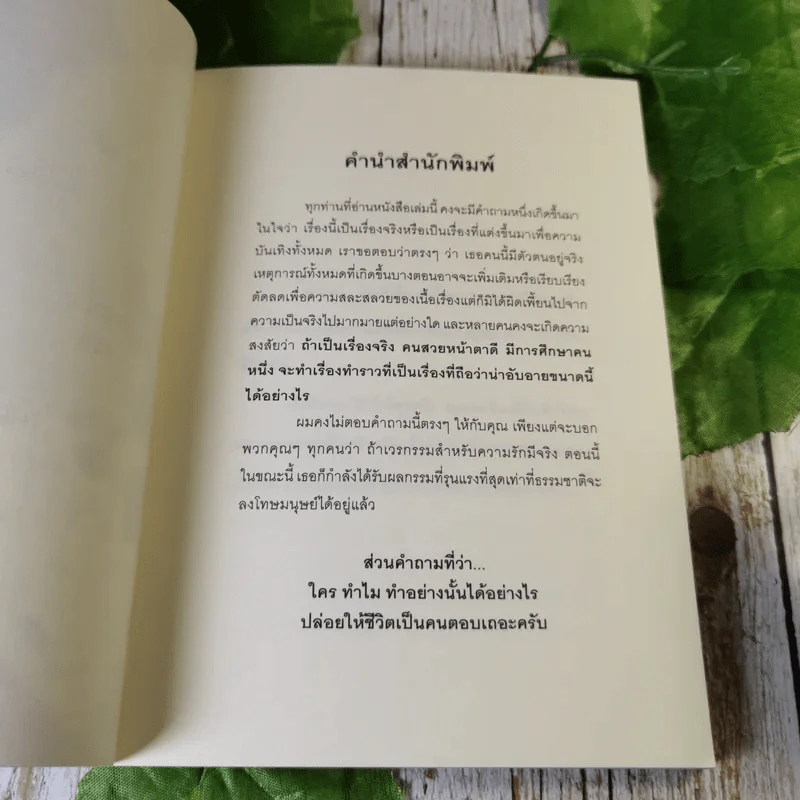 คำนำสำนักพิมพ์
ทุกท่านที่อ่านหนังสือเล่มนี้ คงจะมีคำถามหนึ่งเกิดขึ้นมา
ในใจว่า เรื่องนี้เป็นเรื่องจริงหรือเป็นเรื่องที่แต่งขึ้นมาเพื่อความ
บันเทิงทั้งหมด เราขอตอบว่าตรงๆ ว่า เธอคนนี้มีตัวตนอยู่จริง
เหตุการณ์ทั้งหมดที่เกิดขึ้นบางตอนอาจจะเพิ่มเติมหรือเรียบเรียง
ตัดลดเพื่อความสละสลวยของเนื้อเรื่องแต่ก็มิได้ผิดเพี้ยนไปจาก
ความเป็นจริงไปมากมายแต่อย่างใด และหลายคนคงจะเกิดความ
สงสัยว่า ถ้าเป็นเรื่องจริง คนสวยหน้าตาดี มีการศึกษาคน
หนึ่ง จะทำเรื่องทำราวที่เป็นเรื่องที่ถือว่าน่าอับอายขนาดนี้
ได้อย่างไร
ผมคงไม่ตอบคำถามนี้ตรงๆ ให้กับคุณ เพียงแต่จะบอก
พวกคุณๆ ทุกคนว่า ถ้าเวรกรรมสำหรับความรักมีจริง ตอนนี้
ในขณะนี้ เธอก็กำลังได้รับผลกรรมที่รุนแรงที่สุดเท่าที่ธรรมชาติจะ
ลงโทษมนุษย์ได้อยู่แล้ว
ส่วนคำถามที่ว่า...
ใคร ทำไม ทำอย่างนั้นได้อย่างไร
ปล่อยให้ชีวิตเป็นคนตอบเถอะครับ